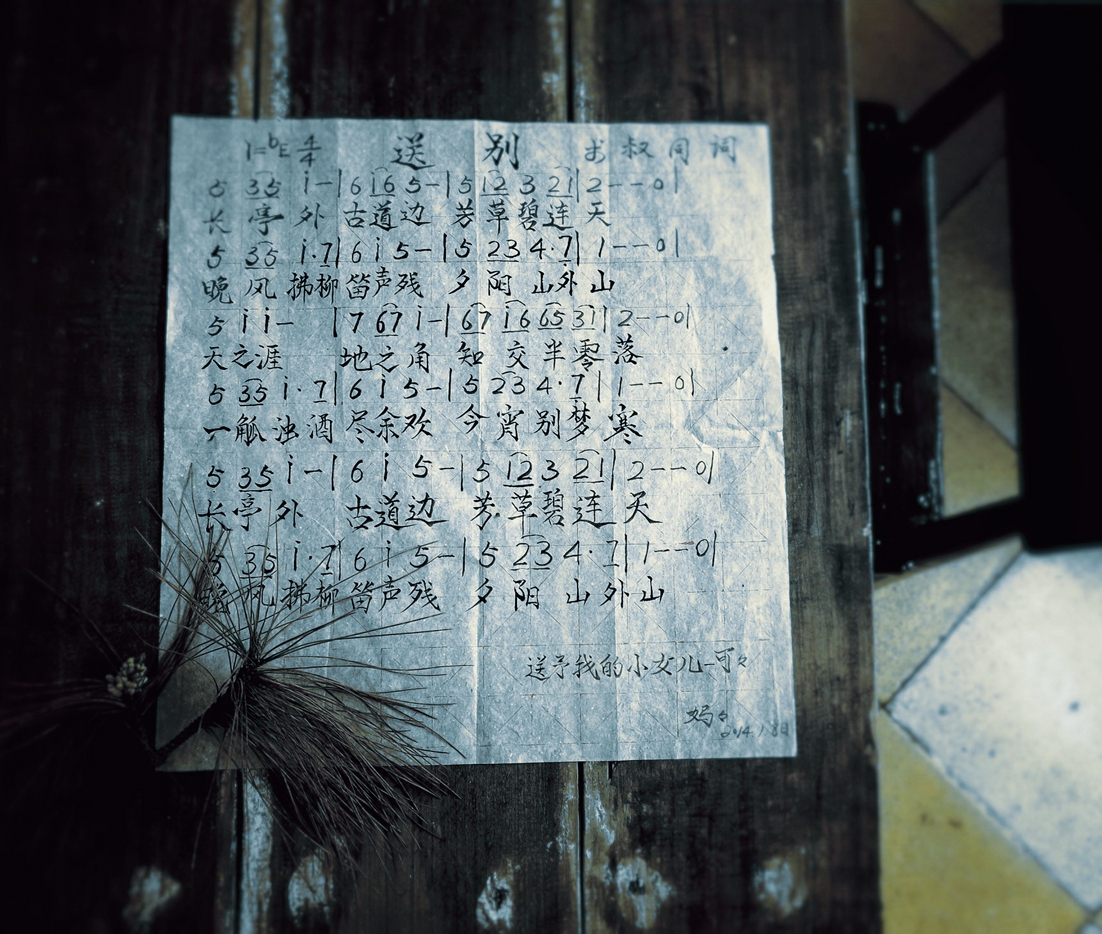 1=ᵇE 4/4 送别 李叔同 词
5 35 i-|6 i6 5-|5 12 3 21|2--0|
长亭外 古道边 芳草碧连天
5 35 i·7|6 i 5-|5 23 4·7|1--0|
晚风拂柳笛声残 夕阳山外山
5 i i-|7 67 i-|67 i6 65 31|2--0|
天之涯 地之角 知交半零落
5 35 i·7|6 i 5-|5 23 4·7|1--0|
一觚浊酒尽余欢 今宵别梦寒
5 35 i-|6 i 5-|5 12 3 21|2--0|
长亭外 古道边 芳草碧连天
5 35 i·7|6 i 5-|5 23 4·7|1--0|
晚风拂柳笛声残 夕阳山外山
送予我的小女儿—可々
妈々